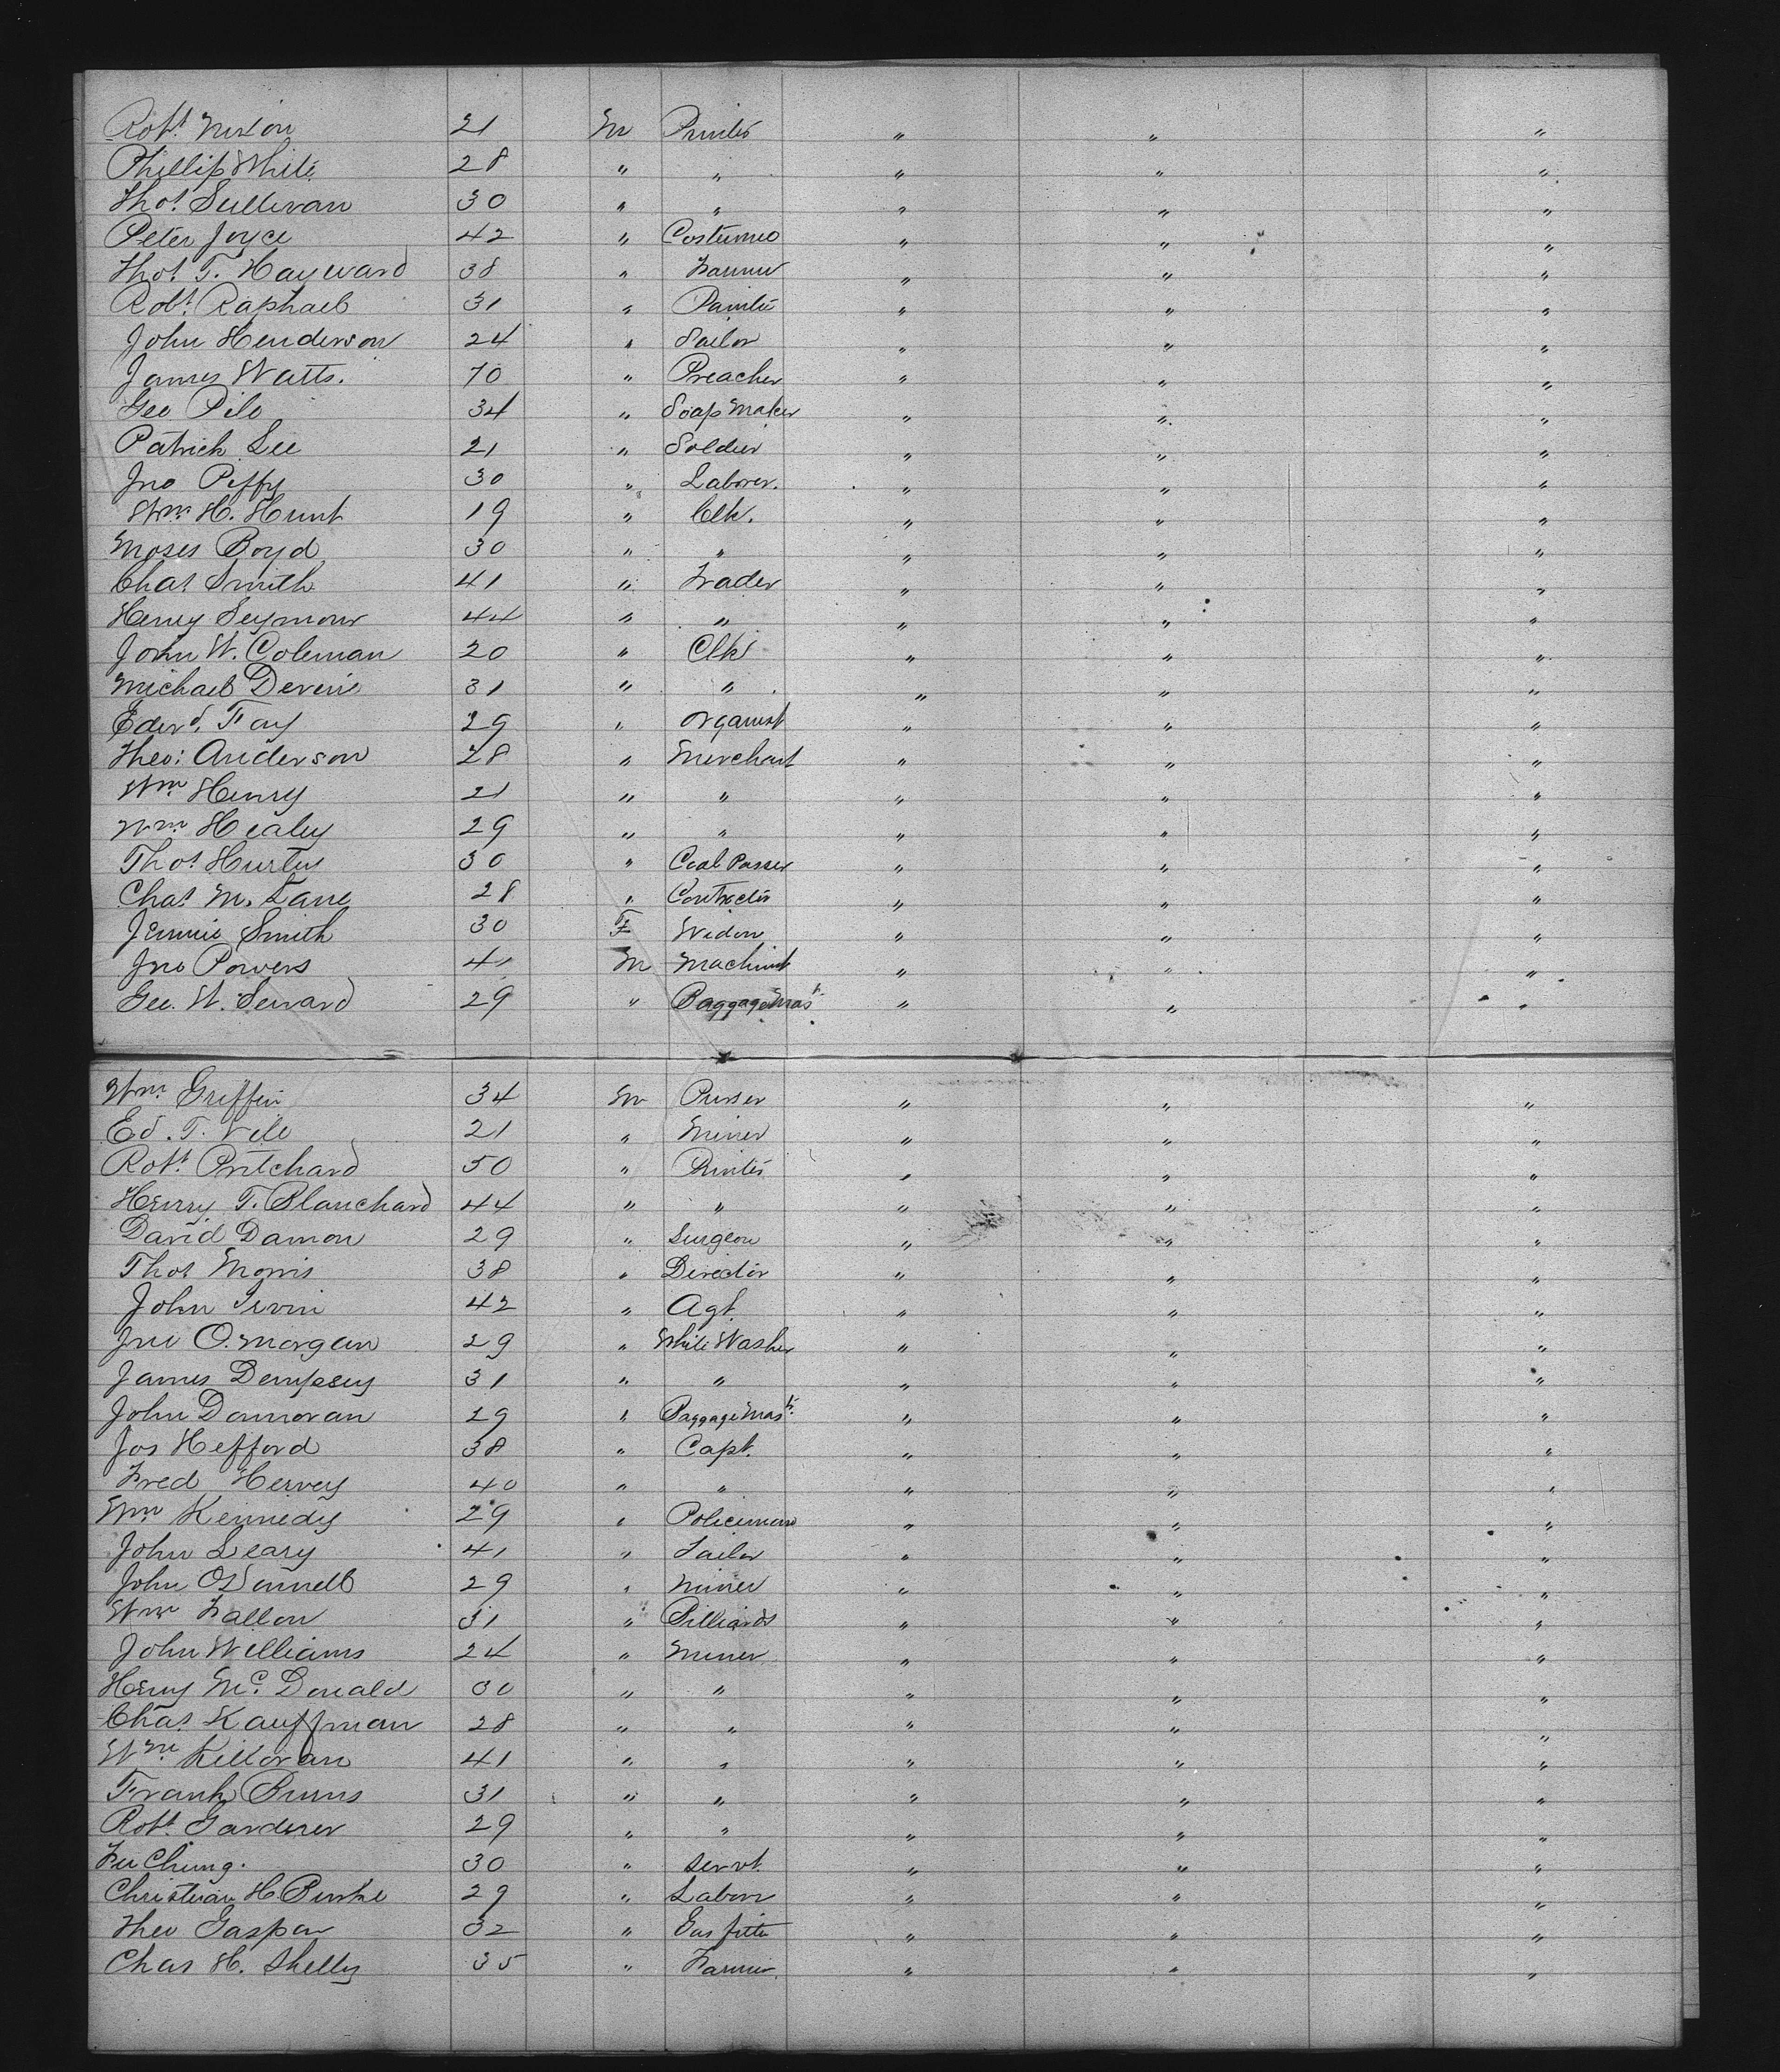 Robt. Nixon 21 M Printer " " "
Phillip White 28 " " " " "
Thos. Sullivan 30 " " " " "
Peter Joyce 42 " Costumer " " "
Thos. T. Hayward 38 " Farmer " " "
Robt. Raphael 31 " Painter " " "
John Henderson 24 " Sailor " " "
James Watts. 70 " Preacher " " "
Geo 34 " Soap Maker " " "
Patrick Lee 21 " Soldier " " "
Jno Piffy 30 " Laborer. " " "
Wm. H. Hunt 19 " Clk. " " "
Moses Boyd 30 " " " " "
Chas Smith 41 " Trader " " "
Henry Seymour 44 " " " " "
John W. Coleman 20 " Clk " " "
Michael Devine 31 " " " " "
Edwd. Fay 29 " Organist " " "
Theo: Anderson 28 " Merchant " " "
Wm Henry 21 " " " " "
Wm Healey 29 " " " " "
Thos Hurley 30 " Coal Passer " " "
Chas. M. Lane 28 " Contractor " " "
Jennie Smith 30 F Widow " " "
Jno Powers 41 M Machinist " " "
Geo. W. Seward 29 " Baggage Mastr. " " "
Wm. Griffin 34 M Purser " " "
Ed. T. 21 " Miner " " "
Robt. Pritchard 50 " Printer " " "
Henry T. Blanchard 44 " " " " "
David Damon 29 " Surgeon " " "
Thos Morris 38 " Director " " "
John Irvin 42 " Agt. " " "
Jno O. Morgan 29 " White Washer " " "
James Dempsey 31 " " " " "
John Donnovan 29 " Baggage Mastr. " " "
Jos Hefford 38 " Capt. " " "
Fred Hervey 40 " " " " "
Wm Kennedy 29 " Policeman " " "
John Leary 41 " Tailor " " "
John O'Donnell 29 " Miner " " "
Wm Fallon 31 " Billiards " " "
John Williams 24 " Miner " " "
Henry Mc. Donald 30 " " " " "
Chas. Kauffman 28 " " " " "
Wm Killoran 41 " " " " "
Frank Burns 31 " " " " "
Robt. Gardener 29 " " " " "
Fu Chung. 30 " Servt. " " "
Christian H. 29 " Labor " " "
Theo Gaspar 32 " Gas fitter " " "
Chas H. Shelly 35 " Farmer " " "